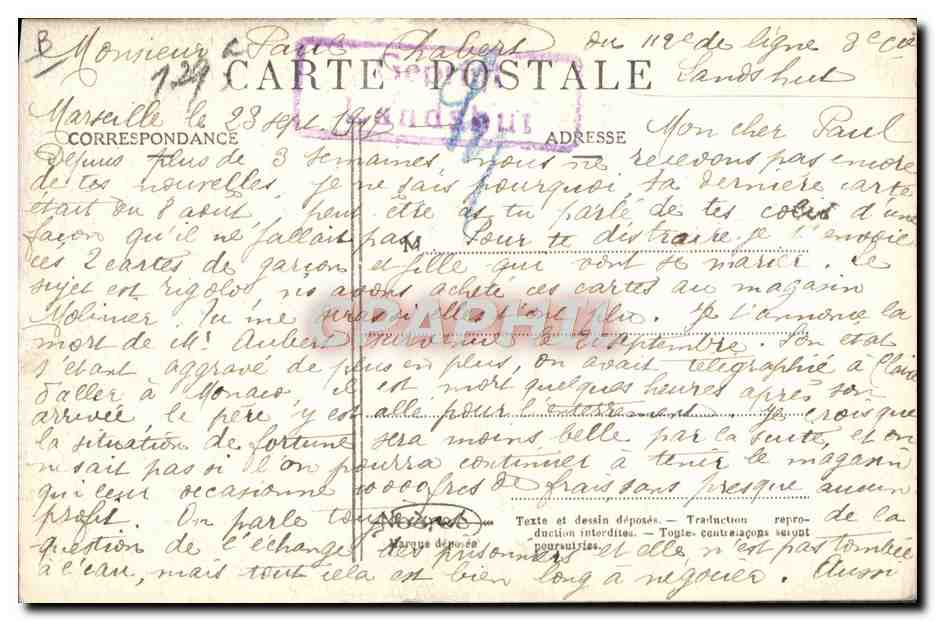 B Monsieur Paul Chabert du 112e de ligne 3e Cie
129 CARTE POSTALE Landshut
Geprüft
Landshut
Marseille le 23 sept Mon cher Paul
CORRESPONDANCE ADRESSE
Depuis plus de 3 semaines, nous ne recevons pas encore
de tes nouvelles. Je ne sais pourquoi, ta dernière carte
était du 8 août, peut être as tu parlé de tes colis d'une
façon qu'il ne fallait pas. Pour te distraire je t'envoie
M
ces 2 cartes de garçon et fille qui vont se marier. Le
sujet est rigolo, ns avons acheté ces cartes au magasin
Molinier. Tu me diras si elles t'ont plu. Je t'annonce la
CPAPHIL
mort de Mr Aubert survenue le 2 septembre. Son état
s'étant aggravé de plus en plus, on avait télégraphié à Claire
d'aller à Monaco il est mort quelques heures après son
arrivée le père y est allé pour l'enterrement. Je crois que
la situation de fortune sera moins belle par la suite, et on
ne sait pas si l'on pourra continuer à tenir le magasin
qui leur occasionne 10000 frcs de frais sans presque aucun
profit. On parle toujours de la
Texte et dessin déposés. — Traduction repro-
duction interdites. — Toutes contrefaçons seront
poursuivies.
Marque déposée
question de l'échange des prisonniers et elle n'est pas tombée
à l'eau, mais tout cela est bien long à négocier. Aussi